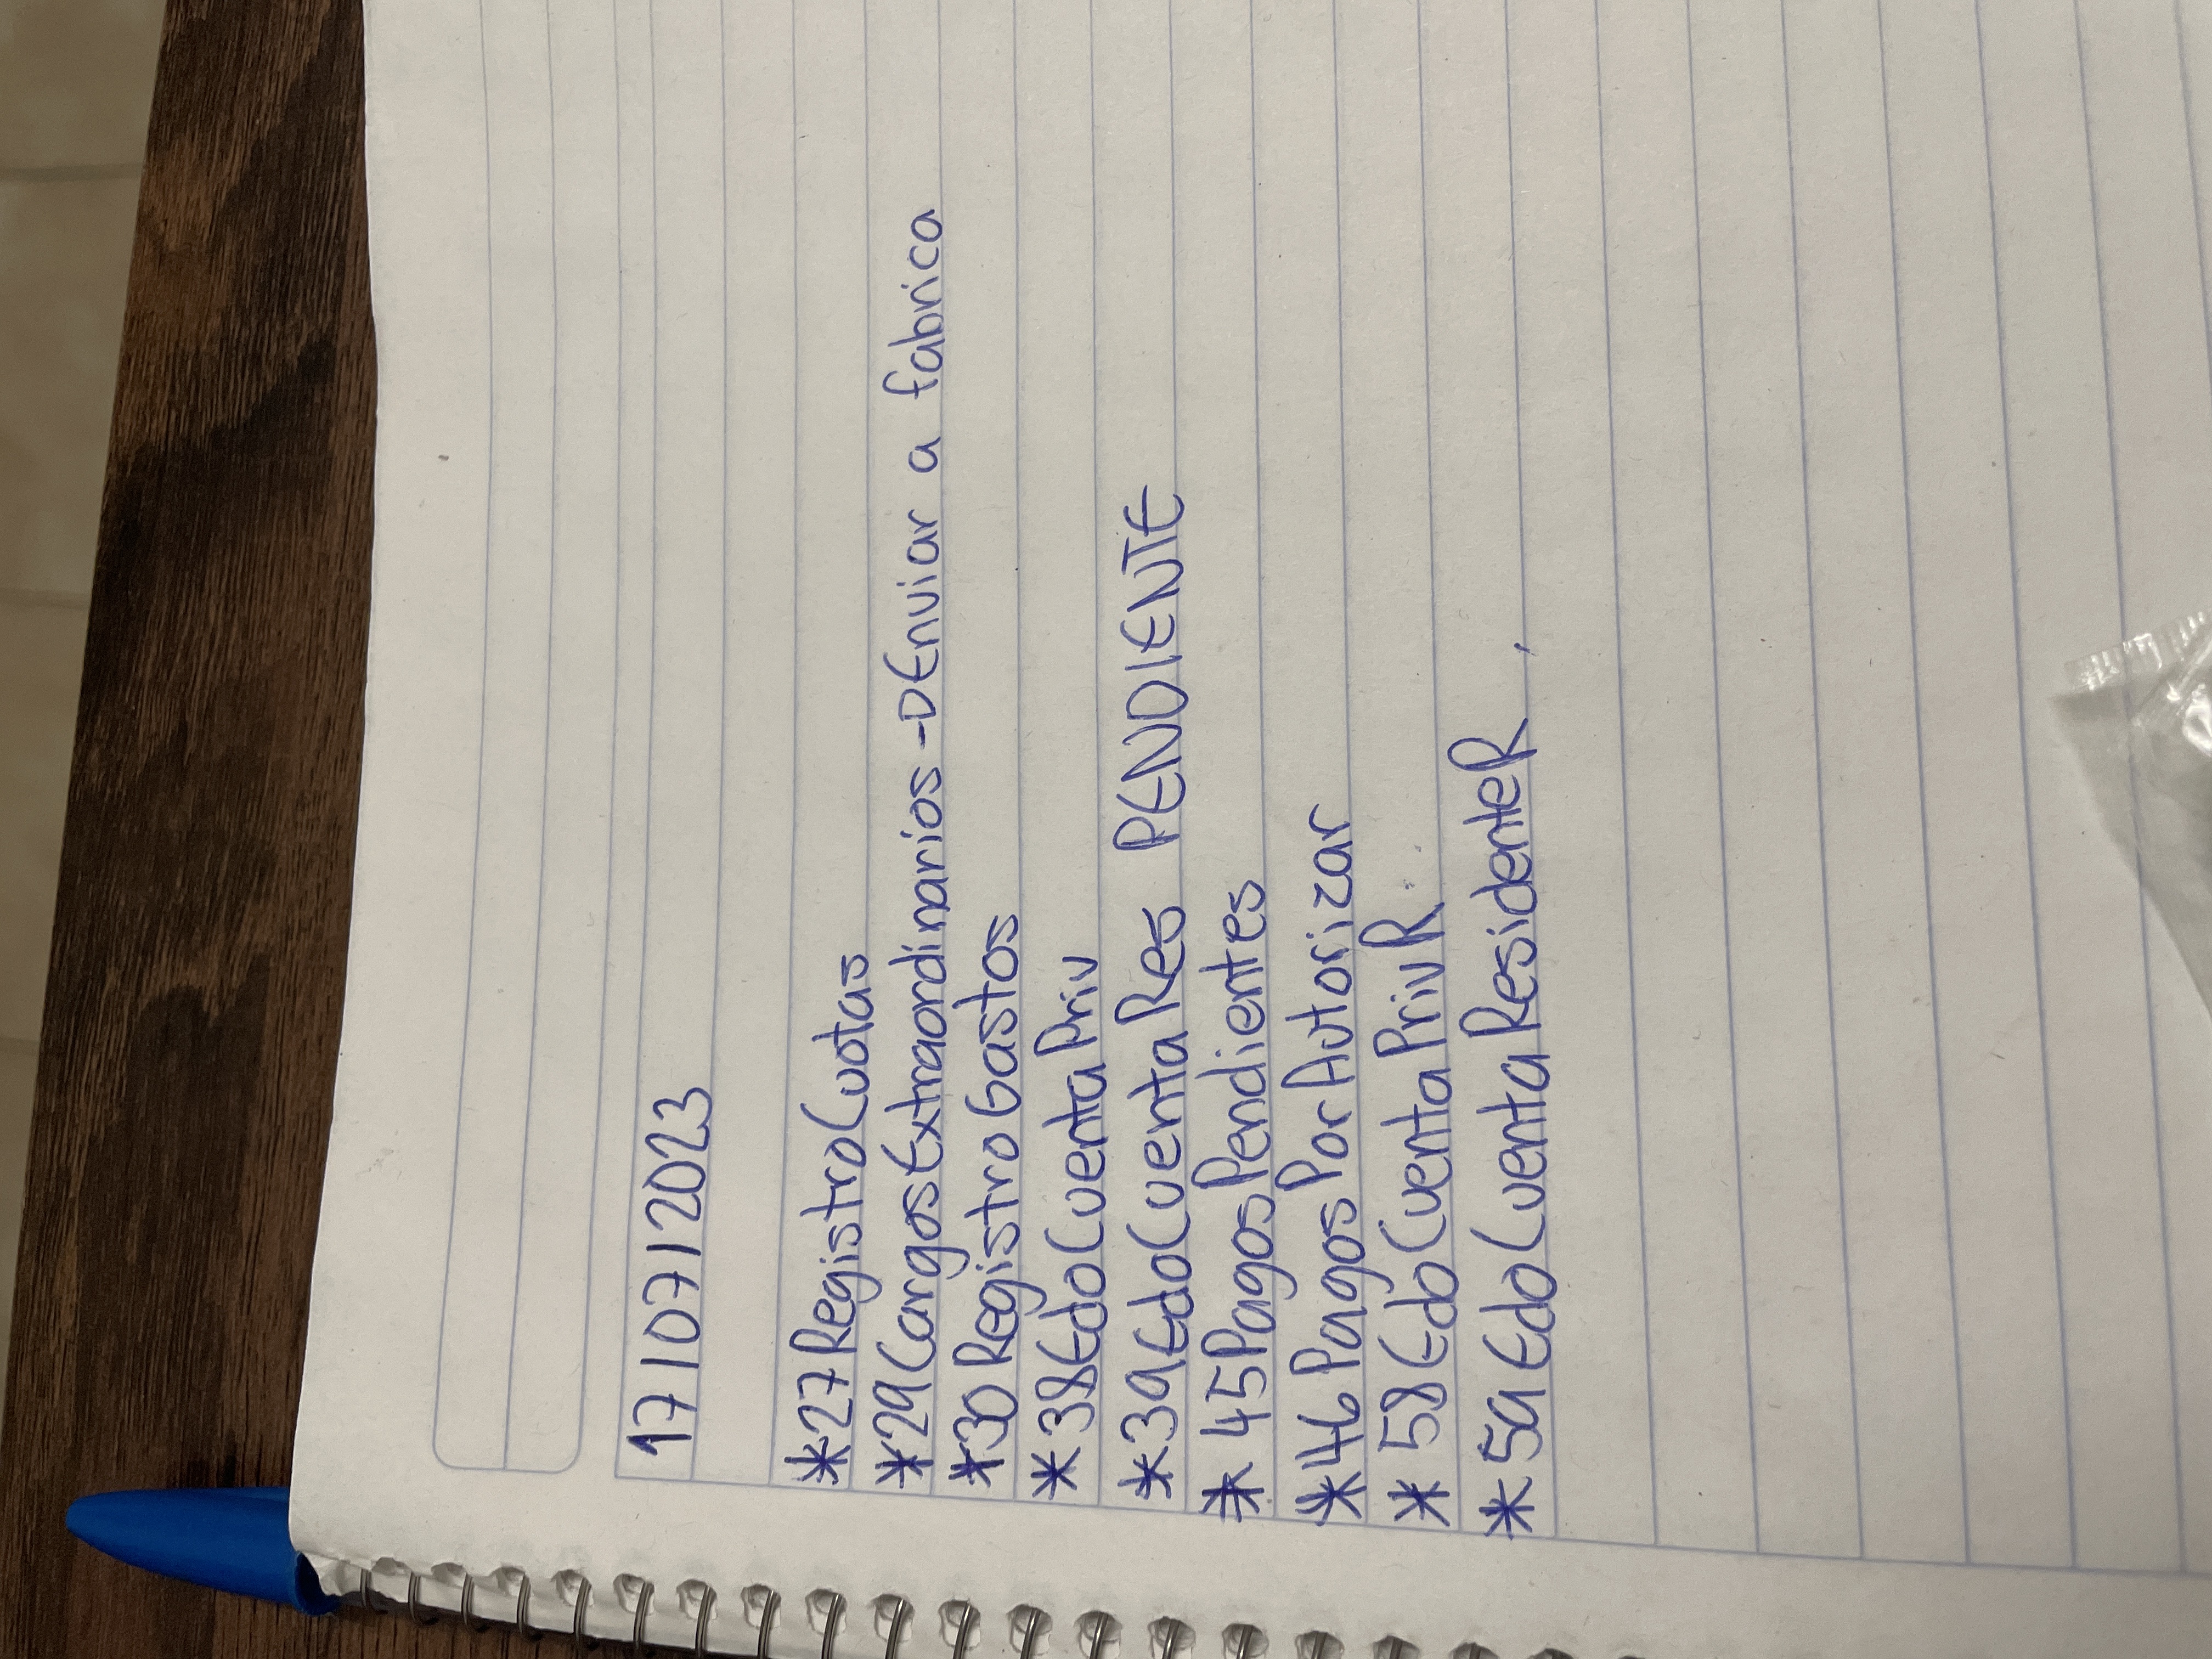 17/07/2023
*27RegistroCuotas
*29CargosExtraordinarios-DEnviar a fabrica
*30RegistroGastos
*38EdoCuentaPriv
*39EdoCuentaRes PENDIENTE
*45PagosPendientes
*46PagosPorAutorizar
*58EdoCuentaPrivR.
*59EdoCuentaResidenteR,